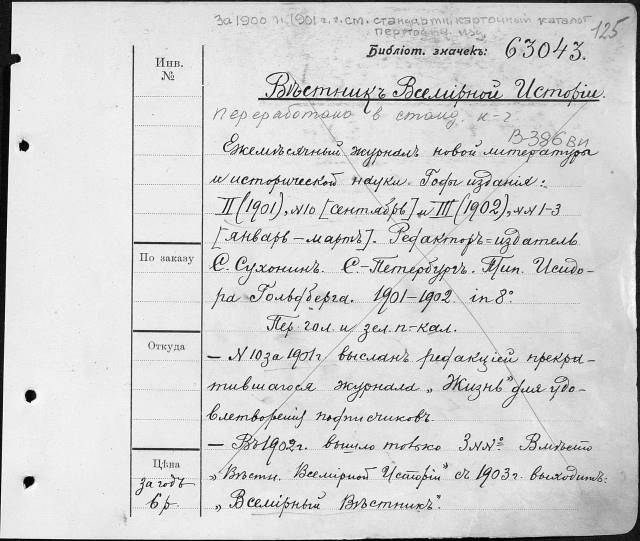 За 1900 и 1901 г.г. см. стандартн. карточный каталог
125
Библіот. значекъ: 63043.
Инв.
№
Вѣстникъ Всемірной Исторіи.
переработано в станд. к-г
В-386 ви
Ежемѣсячный журналъ новой литературы
и исторической науки. Годы изданія:
II (1901), №10 [сентябрь] и III (1902), №№ 1-3
[январь – мартъ]. Редакторъ=издатель
По заказу
С. Сухонинъ. С.-Петербургъ. Тип. Исидо-
ра Гольдберга. 1901-1902. in 8º.
Пер. гол. и зел. п-кал.
Откуда
– №10 за 1901 г высланъ редакціей прекра-
тившагося журнала „Жизнь" для удо-
влетворенія подписчиковъ.
– Въ 1902 г. вышло только 3 №№º. Вмѣсто
Цѣна
„Вѣстн. Всемірной Исторіи" съ 1903 г. выходитъ:
за годъ
6 р.
„Всемірный Вѣстникъ".